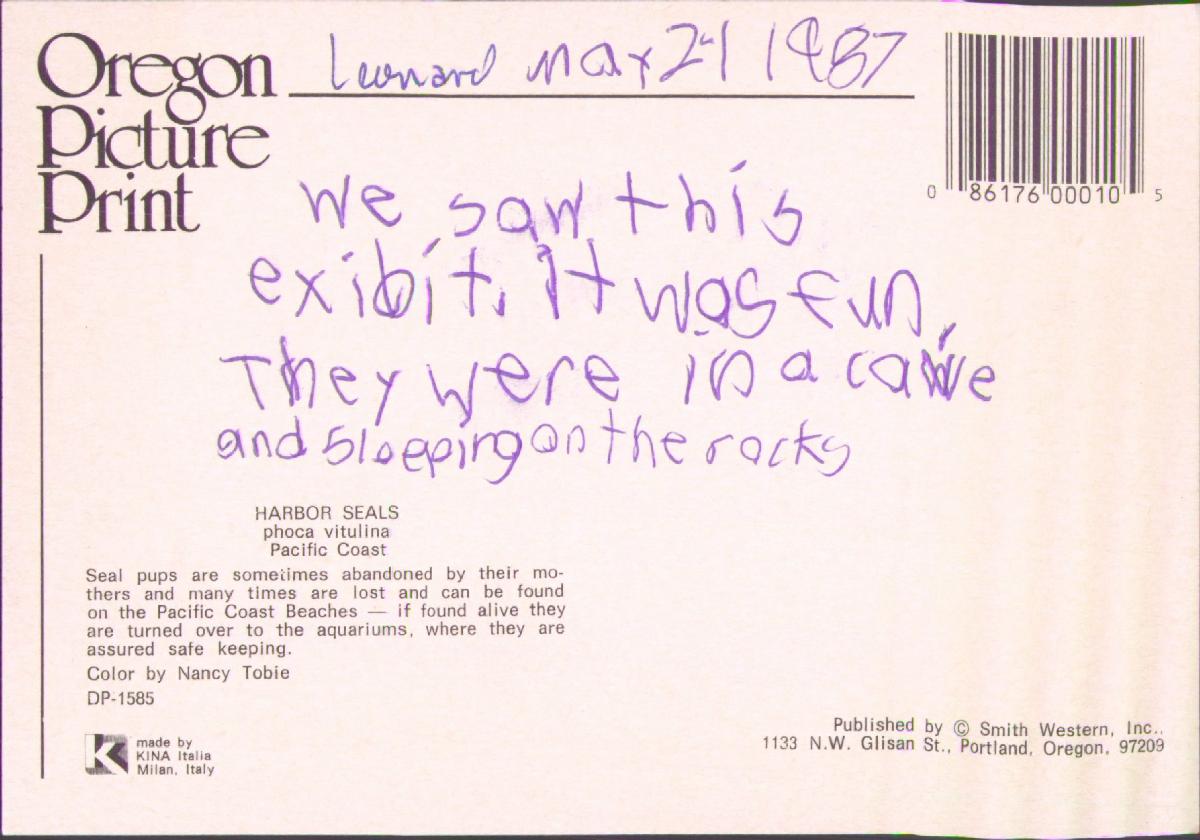 Oregon
Picture
Print
Leonard May 21 1987
0 86176 00010 5
We saw this
exibit. It was fun.
They were in a cawve
and sleeping on the rocks
HARBOR SEALS
phoca vitulina
Pacific Coast
Seal pups are sometimes abandoned by their mo-
thers and many times are lost and can be found
on the Pacific Coast Beaches — if found alive they
are turned over to the aquariums, where they are
assured safe keeping.
Color by Nancy Tobie
DP-1585
K
made by
KINA Italia
Milan, Italy
Published by © Smith Western, Inc.,
1133 N.W. Glisan St., Portland, Oregon, 97209